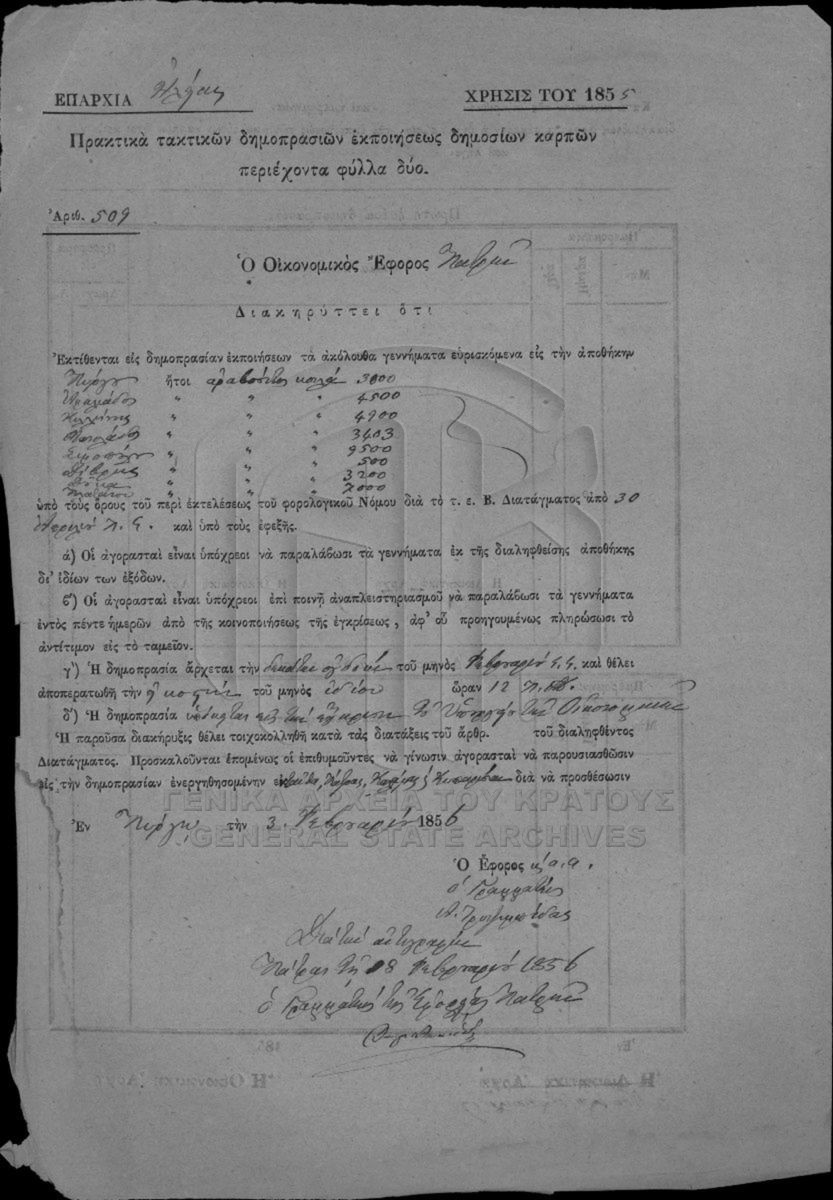 ΕΠΑΡΧΙΑ Ἠλείας
ΧΡΗΣΙΣ ΤΟΥ 1855
Πρακτικὰ τακτικῶν δημοπρασιῶν ἐκποιήσεως δημοσίων καρπῶν
περιέχοντα φύλλα δύο.
Ἀριθ. 509
Ὁ Οἰκονομικὸς Ἔφορος Πατρῶν
Διακηρύττει ὅτι
Ἐκτίθενται εἰς δημοπρασίαν ἐκποιήσεων τὰ ἀκόλουθα γεννήματα εὑρισκόμενα εἰς τὴν ἀποθήκην
Πύργου ἤτοι ἀραβοσίτου κοιλὰ 3000
" " " 4500
" " " 4900
" " " 3403
" " " 9500
" " " 500
" " " 3200
" " " 7000
ὑπὸ τοὺς ὅρους τοῦ περὶ ἐκτελέσεως τοῦ φορολογικοῦ Νόμου διὰ τὸ τ. ε. Β. Διατάγματος ἀπὸ 30
Ἀπριλίου π. ἔ. καὶ ὑπὸ τοὺς ἑφεξῆς.
ά) Οἱ ἀγορασταὶ εἶναι ὑπόχρεοι νὰ παραλάβωσι τὰ γεννήματα ἐκ τῆς διαληφθείσης ἀποθήκης
δι' ἰδίων των ἐξόδων.
ϐ') Οἱ ἀγορασταὶ εἶναι ὑπόχρεοι ἐπὶ ποινῇ ἀναπλειστηριασμοῦ νὰ παραλάβωσι τὰ γεννήματα
ἐντὸς πέντε ἡμερῶν ἀπὸ τῆς κοινοποιήσεως τῆς ἐγκρίσεως, ἀφ' οὗ προηγουμένως πληρώσωσι τὸ
ἀντίτιμον εἰς τὸ ταμεῖον.
γ') Ἡ δημοπρασία ἄρχεται τὴν δεκάτην ὀγδόην τοῦ μηνὸς Φεβρουαρίου ἔ. ἔ. καὶ θέλει
ἀποπερατωθῆ τὴν εἰκοστὴν τοῦ μηνὸς ἰδίου ὥραν 12 π. Μ.
δ') Ἡ δημοπρασία ὑπόκειται εἰς τὴν ἔγκρισιν τοῦ Ὑπουργείου τῶν Οἰκονομικῶν
Ἡ παροῦσα διακήρυξις θέλει τοιχοκολληθῆ κατὰ τὰς διατάξεις τοῦ ἄρθρ. τοῦ διαληφθέντος
Διατάγματος. Προσκαλοῦνται ἑπομένως οἱ ἐπιθυμοῦντες νὰ γίνωσιν ἀγορασταὶ νὰ παρουσιασθῶσιν
εἰς τὴν δημοπρασίαν ἐνεργηθησομένην διὰ νὰ προσθέσωσιν
Ἐν Πύργῳ τὴν 3 Φεβρουαρίου 1856
Ὁ Ἔφορος κ. α. α.
ὁ Γραμματεὺς
Διὰ τὴν ἀντιγραφὴν
Πάτραι τῇ 8 Φεβρουαρίου 1856
ὁ Γραμματεὺς τῆς Ἐφορίας Πατρῶν
ΓΕΝΙΚΑ ΑΡΧΕΙΑ ΤΟΥ ΚΡΑΤΟΥΣ
GENERAL STATE ARCHIVES